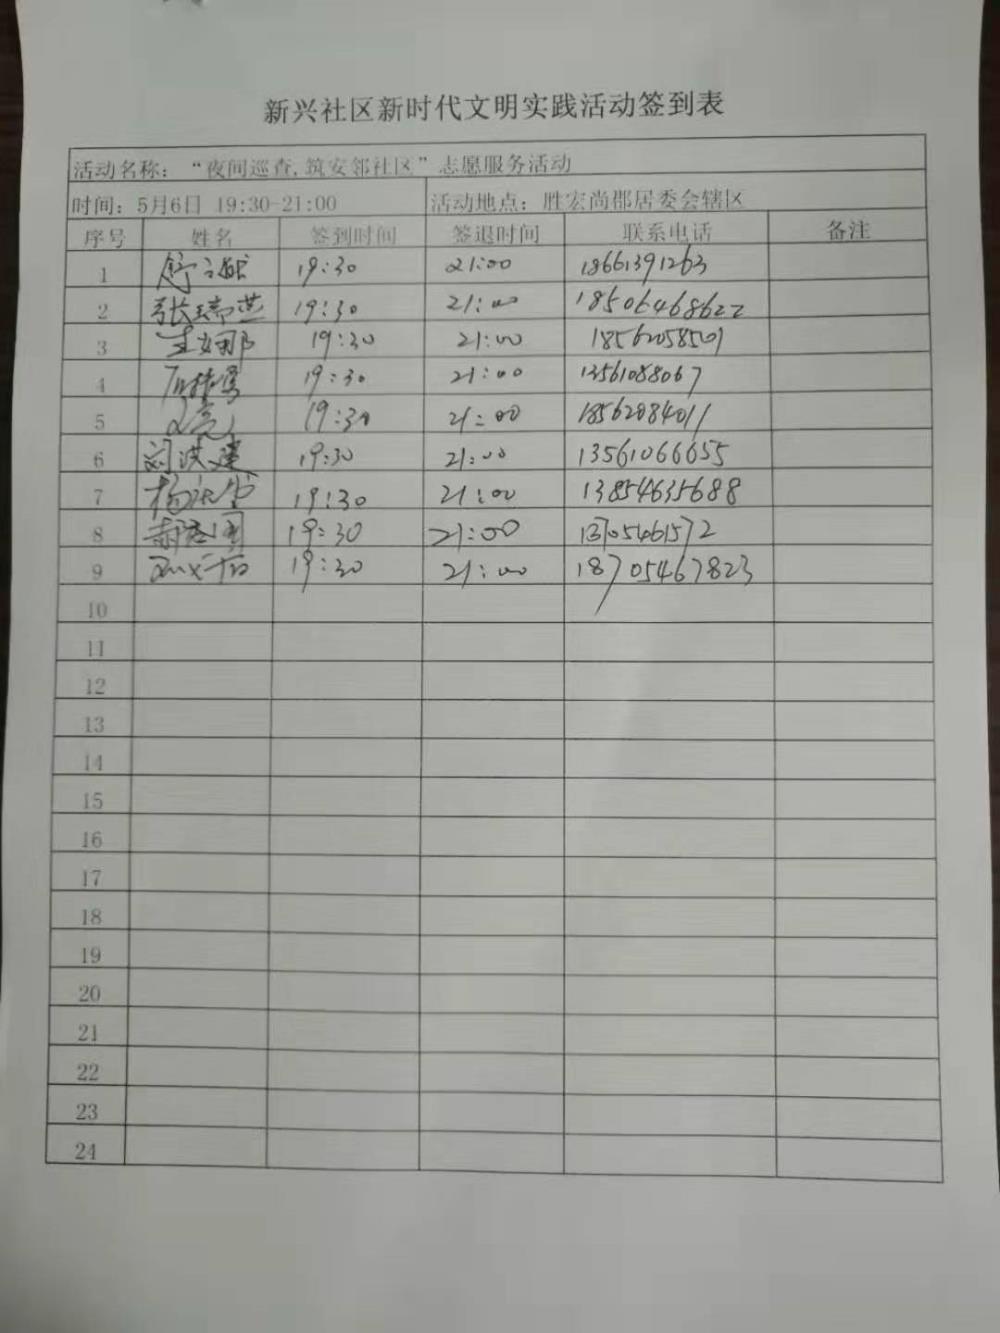 新兴社区新时代文明实践活动签到表
活动名称：“夜间巡查,筑安邻社区”志愿服务活动
时间：5月6日 19:30-21:00 活动地点：胜宏尚郡居委会辖区
序号 姓名 签到时间 签退时间 联系电话 备注
1 19:30 21:00 18661391263
2 张瑞燕 19:30 21:00 18506468622
3 王娜 19:30 21:00 18562058501
4 19:30 21:00 13561088067
5 19:30 21:00 18562084011
6 刘洪建 19:30 21:00 13561066655
7 19:30 21:00 13854635688
8 19:30 21:00 13705461572
9 19:30 21:00 18705467823
10
11
12
13
14
15
16
17
18
19
20
21
22
23
24